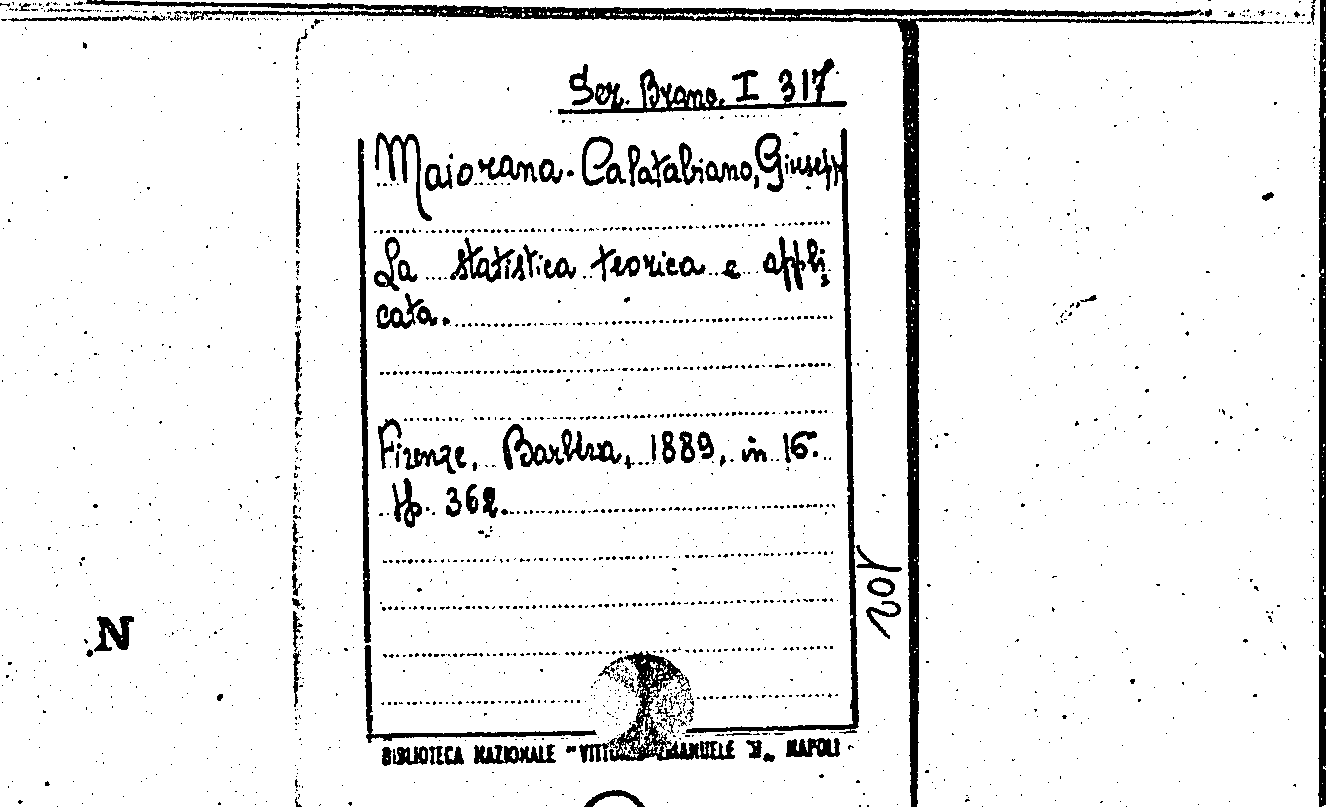 Ser. Branc. I 317
Maiorana-Calatabiano, Giusepp
La statistica teorica e appli
cata.
Firenze, Barbèra, 1889, in 16.
pp. 362.
201
N
BIBLIOTECA NAZIONALE "VITTORIO EMANUELE III„ NAPOLI